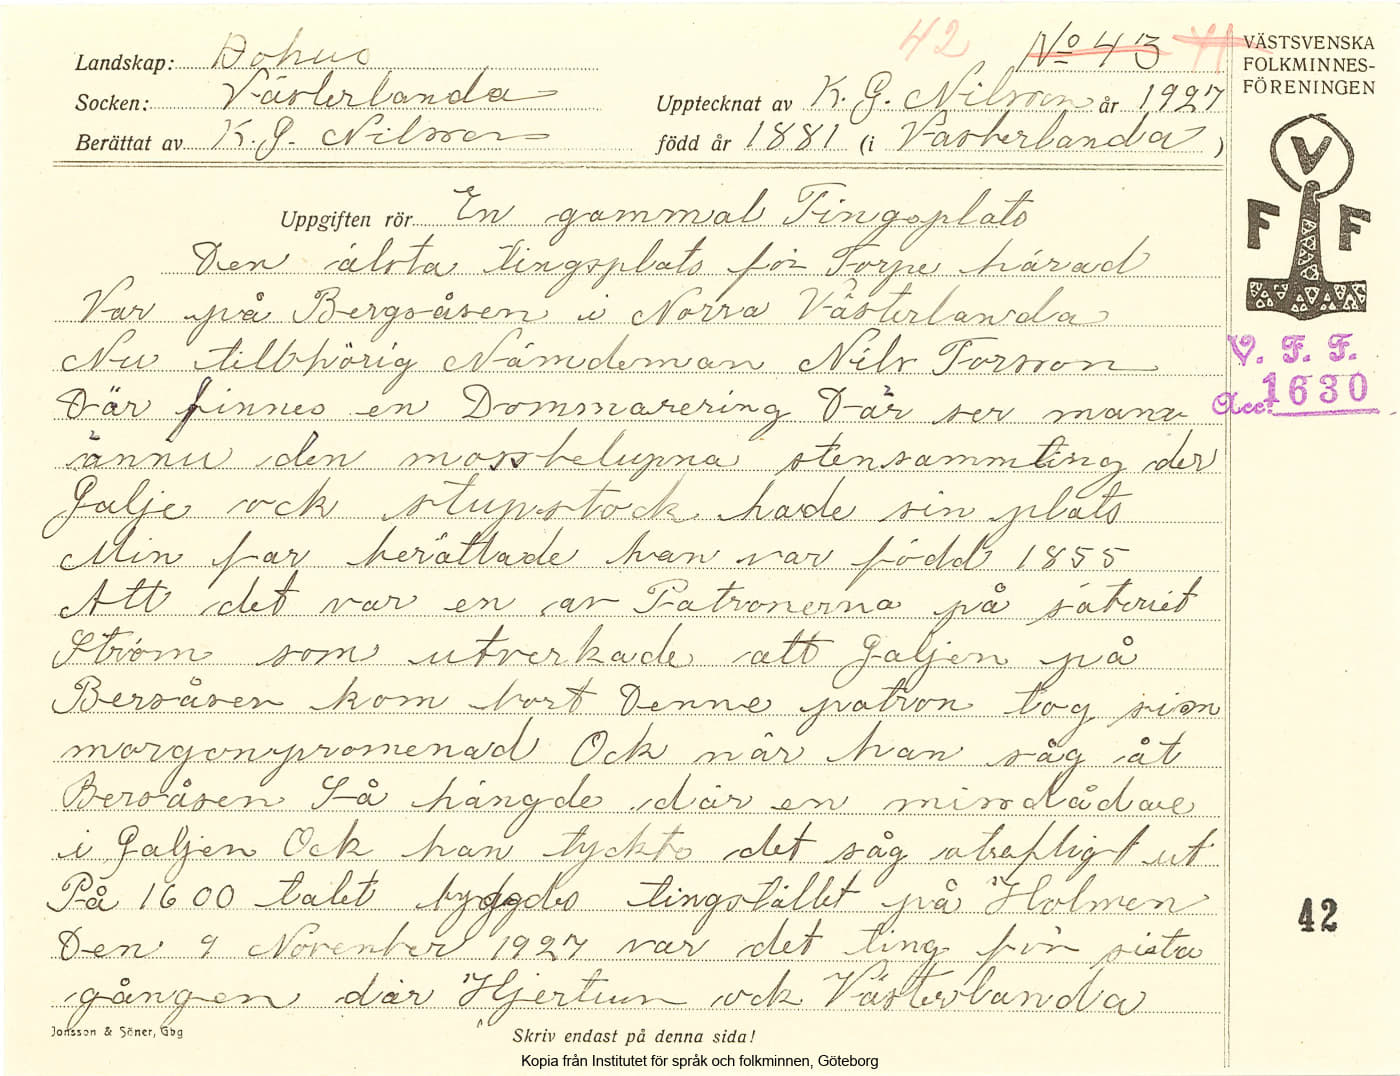 42 No 43 41
Landskap: Bohus
Socken: Västerlanda
Berättat av K. G. Nilsson
Upptecknat av K. G. Nilsson år 1927
född år 1881 (i Västerlanda )
VÄSTSVENSKA
FOLKMINNES-
FÖRENINGEN
V
F F
V. F. F.
Acc. 1630
42
Uppgiften rör En gammal Tingsplats
Den älsta tingsplats för Torpe härad
Var på Bergsåsen i Norra Västerlanda
Nu tillhörig Nämdeman Nils Torsson
Där finnes en Dommarering Där ser man
ännu den mossbelupna stensammling der
Galje ock stupstock hade sin plats
Min far berättade han var född 1855
Att det var en av Patronerna på säteriet
Ström som utverkade att Galjen på
Bersåsen kom bort Denne patron tog sin
morgonpromenad Ock når han såg åt
Bersåsen Så hängde där en missdådare
i Galjen Ock han tyckto det såg otrefligt ut
På 1600 talet byggdes tingstället på Holmen
Den 9 November 1927 var det ting för sista
gången där Hjertum ock Västerlanda
Jonsson & Söner, Gbg
Skriv endast på denna sida!
Kopia från Institutet för språk och folkminnen, Göteborg